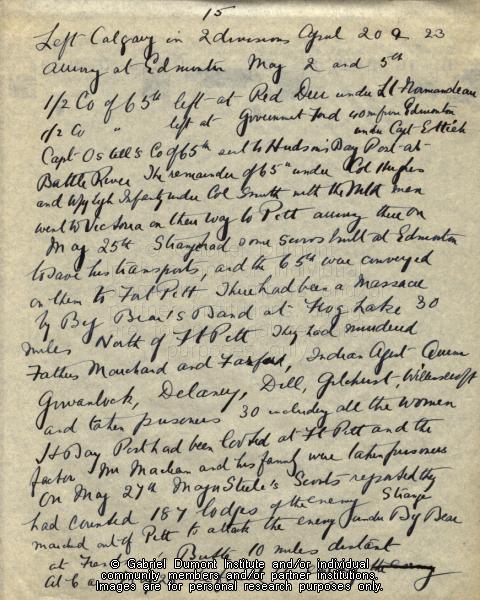 15
Left Calgary in 2 divisions April 20 & 23
arriving at Edmonton May 2 and 5th
1/2 Co of 65th left at Red Deer under Lt Normandeau
1/2 Co " left at Government Ford 40 m from Edmonton
under Capt Ethier
Capt Ostell's Co of 65th sent to Hudson's Bay Post at
Battle River The remainder of 65th under Col Hughes
and Wpg Lgh Infantry under Col Smith with the Mtd men
went to Victoria on their way to Pitt arriving there on
May 25th Strange had some scows built at Edmonton
to save his transports, and the 65th were conveyed
on them to Fort Pitt There had been a Massacre
by Big Bear's Band at Frog Lake 30
miles North of Ft Pitt They had murdered
Fathers Marchand and Farfard, Indian Agent Quinn
Gowanlock, Delaney, Dill, Gilchrist, Williscroft
and taken prisoners 30 including all the women
H Bay Post had been looted at Ft Pitt and the
factor Mr Maclean and his family were taken prisoners
On May 27th Major Steele's Scouts reported they
had counted 187 lodges of the enemy Strange
marched out of Pitt to attack the enemy under Big Bear
at Butte 10 miles distant
At 6 a
© Gabriel Dumont Institute and/or individual
community members and/or partner institutions.
Images are for personal research purposes only.